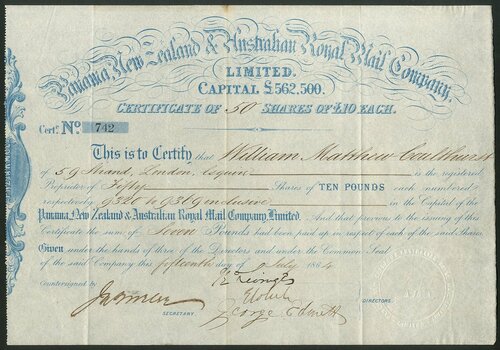 Panama, New Zealand & Australian Royal Mail Company,
LIMITED.
CAPITAL £562,500.
CERTIFICATE OF 50 SHARES OF £10 EACH.
Cert. No. 742
This is to Certify that William Matthew Coulthurst
of 59 Strand, London, Esquire is the registered
Proprietor of Fifty Shares of TEN POUNDS each numbered
respectively 9320 to 9369 inclusive in the Capital of the
Panama, New Zealand & Australian Royal Mail Company Limited. And that previous to the issuing of this
Certificate the sum of Seven Pounds had been paid up in respect of each of the said Shares.
Given under the hands of three of the Directors and under the Common Seal
of the said Company this fifteenth day of July 1864
Countersigned by
George
SECRETARY.
DIRECTORS.